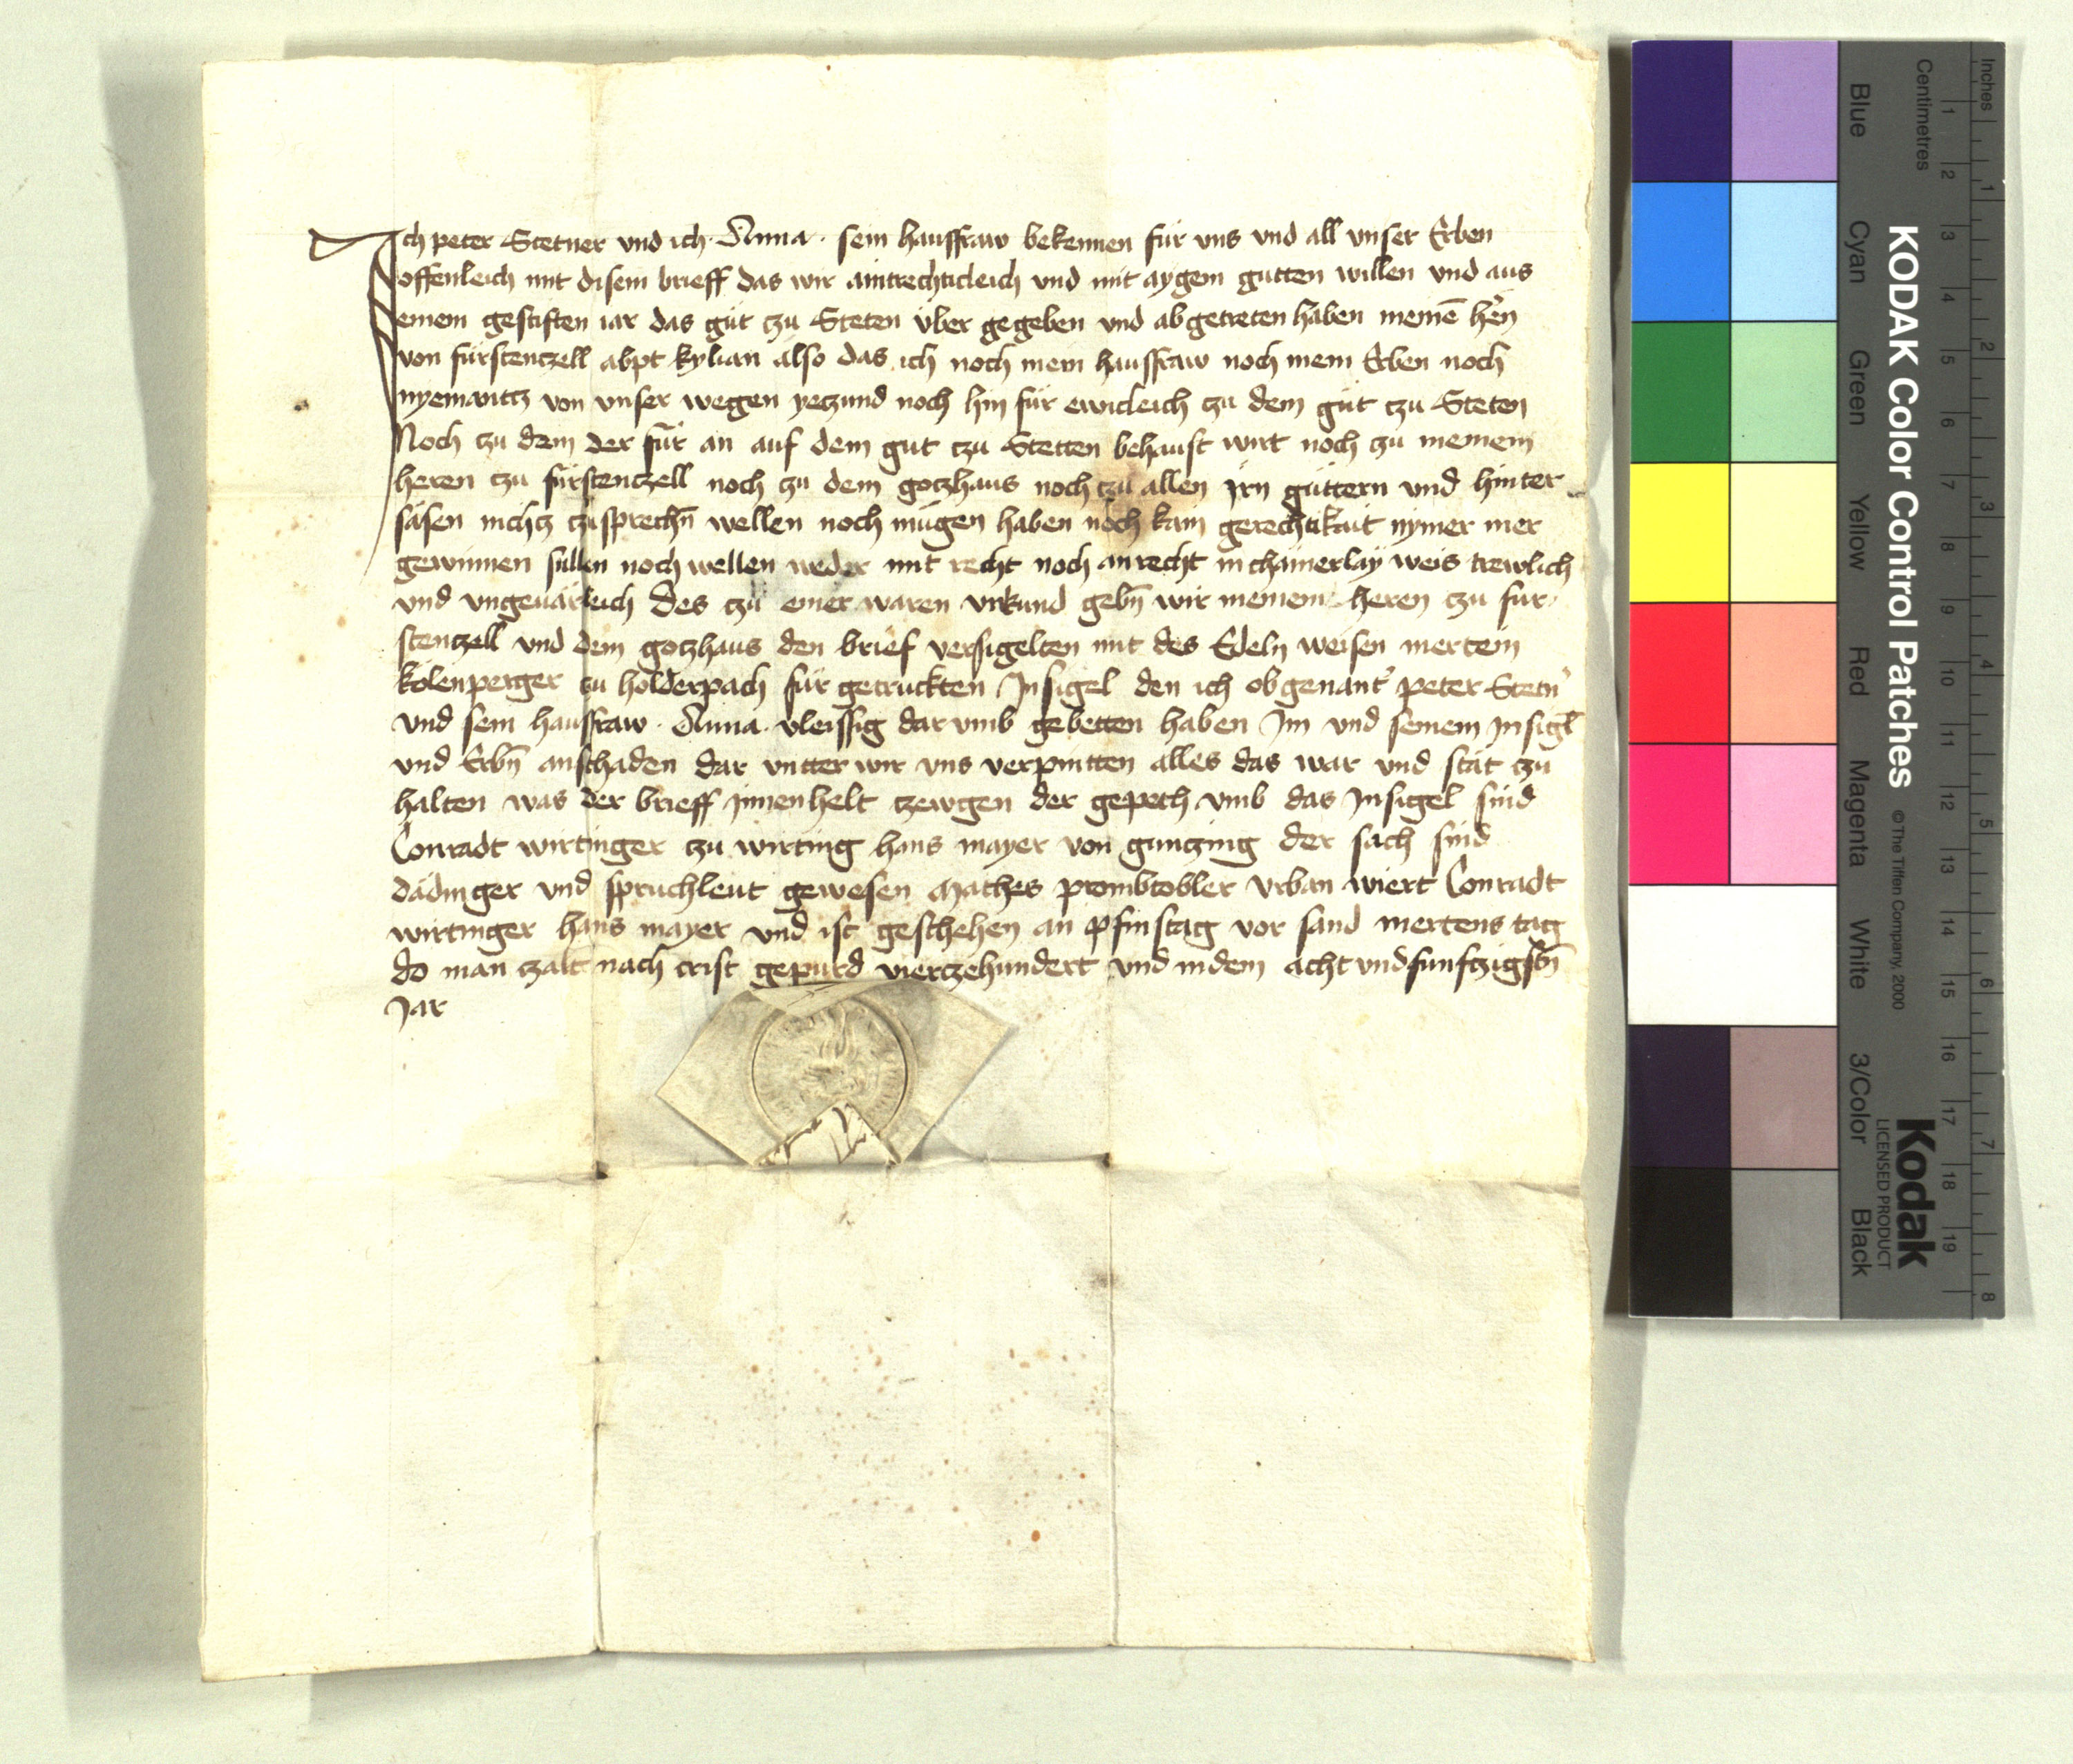 Ich peter Stetner vnd ich · Anna · sein hausfraw bekennen für vns vnd all vnser Erben
offenleich mit disem brieff das wir aintrechticleich vnd mit aygem gutten willen vnd aus
einem gestiften iar das güt czu Steten über gegeben vnd abgetreten haben meinē hern
von fürstenczell abpt kylian also das ich noch mein hausfraw noch mein Erben noch
nyemantz von vnser wegen yeczund noch hin für ewicleich czu dem güt czu Steten
Noch czu dem der für an auf dem gut czu Stetten behaust wirt noch czu meinem
heren czu fürstenczell noch czu dem goczhaus noch czu allen jrn güttern vnd hinter
sasen nichcz czusprechn̄ wellen noch mügen haben noch kain gerechtikait nymer mer
gewinnen sullen noch wellen weder mit recht noch anrecht in chainerlay weis trewlich
vnd vngeuärleich des czü einer waren vrkund gebn̄ wir meinem heren czu für
stenczell vnd dem goczhaus den brief versigelten mit des Edeln weisen mertein
kölenperger czu holderpach für getruckten Insigel den ich obgenant peter Stetn
vnd sein hausfraw · Anna · vleissig dar vmb gebetten haben Im vnd seinem Insigl
vnd Erbn̄ anschaden dar vntter wir vns verpintten alles das war vnd stät czu
halten was der brieff jnnenhelt czewgen der gepeth vmb das Insigel sind
Conradt wirtinger czu wirting hans mayer von gunczing der sach sind
dädinger vnd spruchleut gewesen Mathes prombtobler Vrban wiert Conradt
wirtinger hans mayer vnd ist geschehen an pfinstag vor sand mertens tag
do man czalt nach crist gepurd vierczehundert vnd in dem acht vndfunfczigstn̄
Jar
Inches
Centimetres
1 2 3 4 5 6 7 8 9 10 11 12 13 14 15 16 17 18 19
1 2 3 4 5 6 7 8
KODAK Color Control Patches
© The Tiffen Company, 2000
Kodak
LICENSED PRODUCT
Blue
Cyan
Green
Yellow
Red
Magenta
White
3/Color
Black